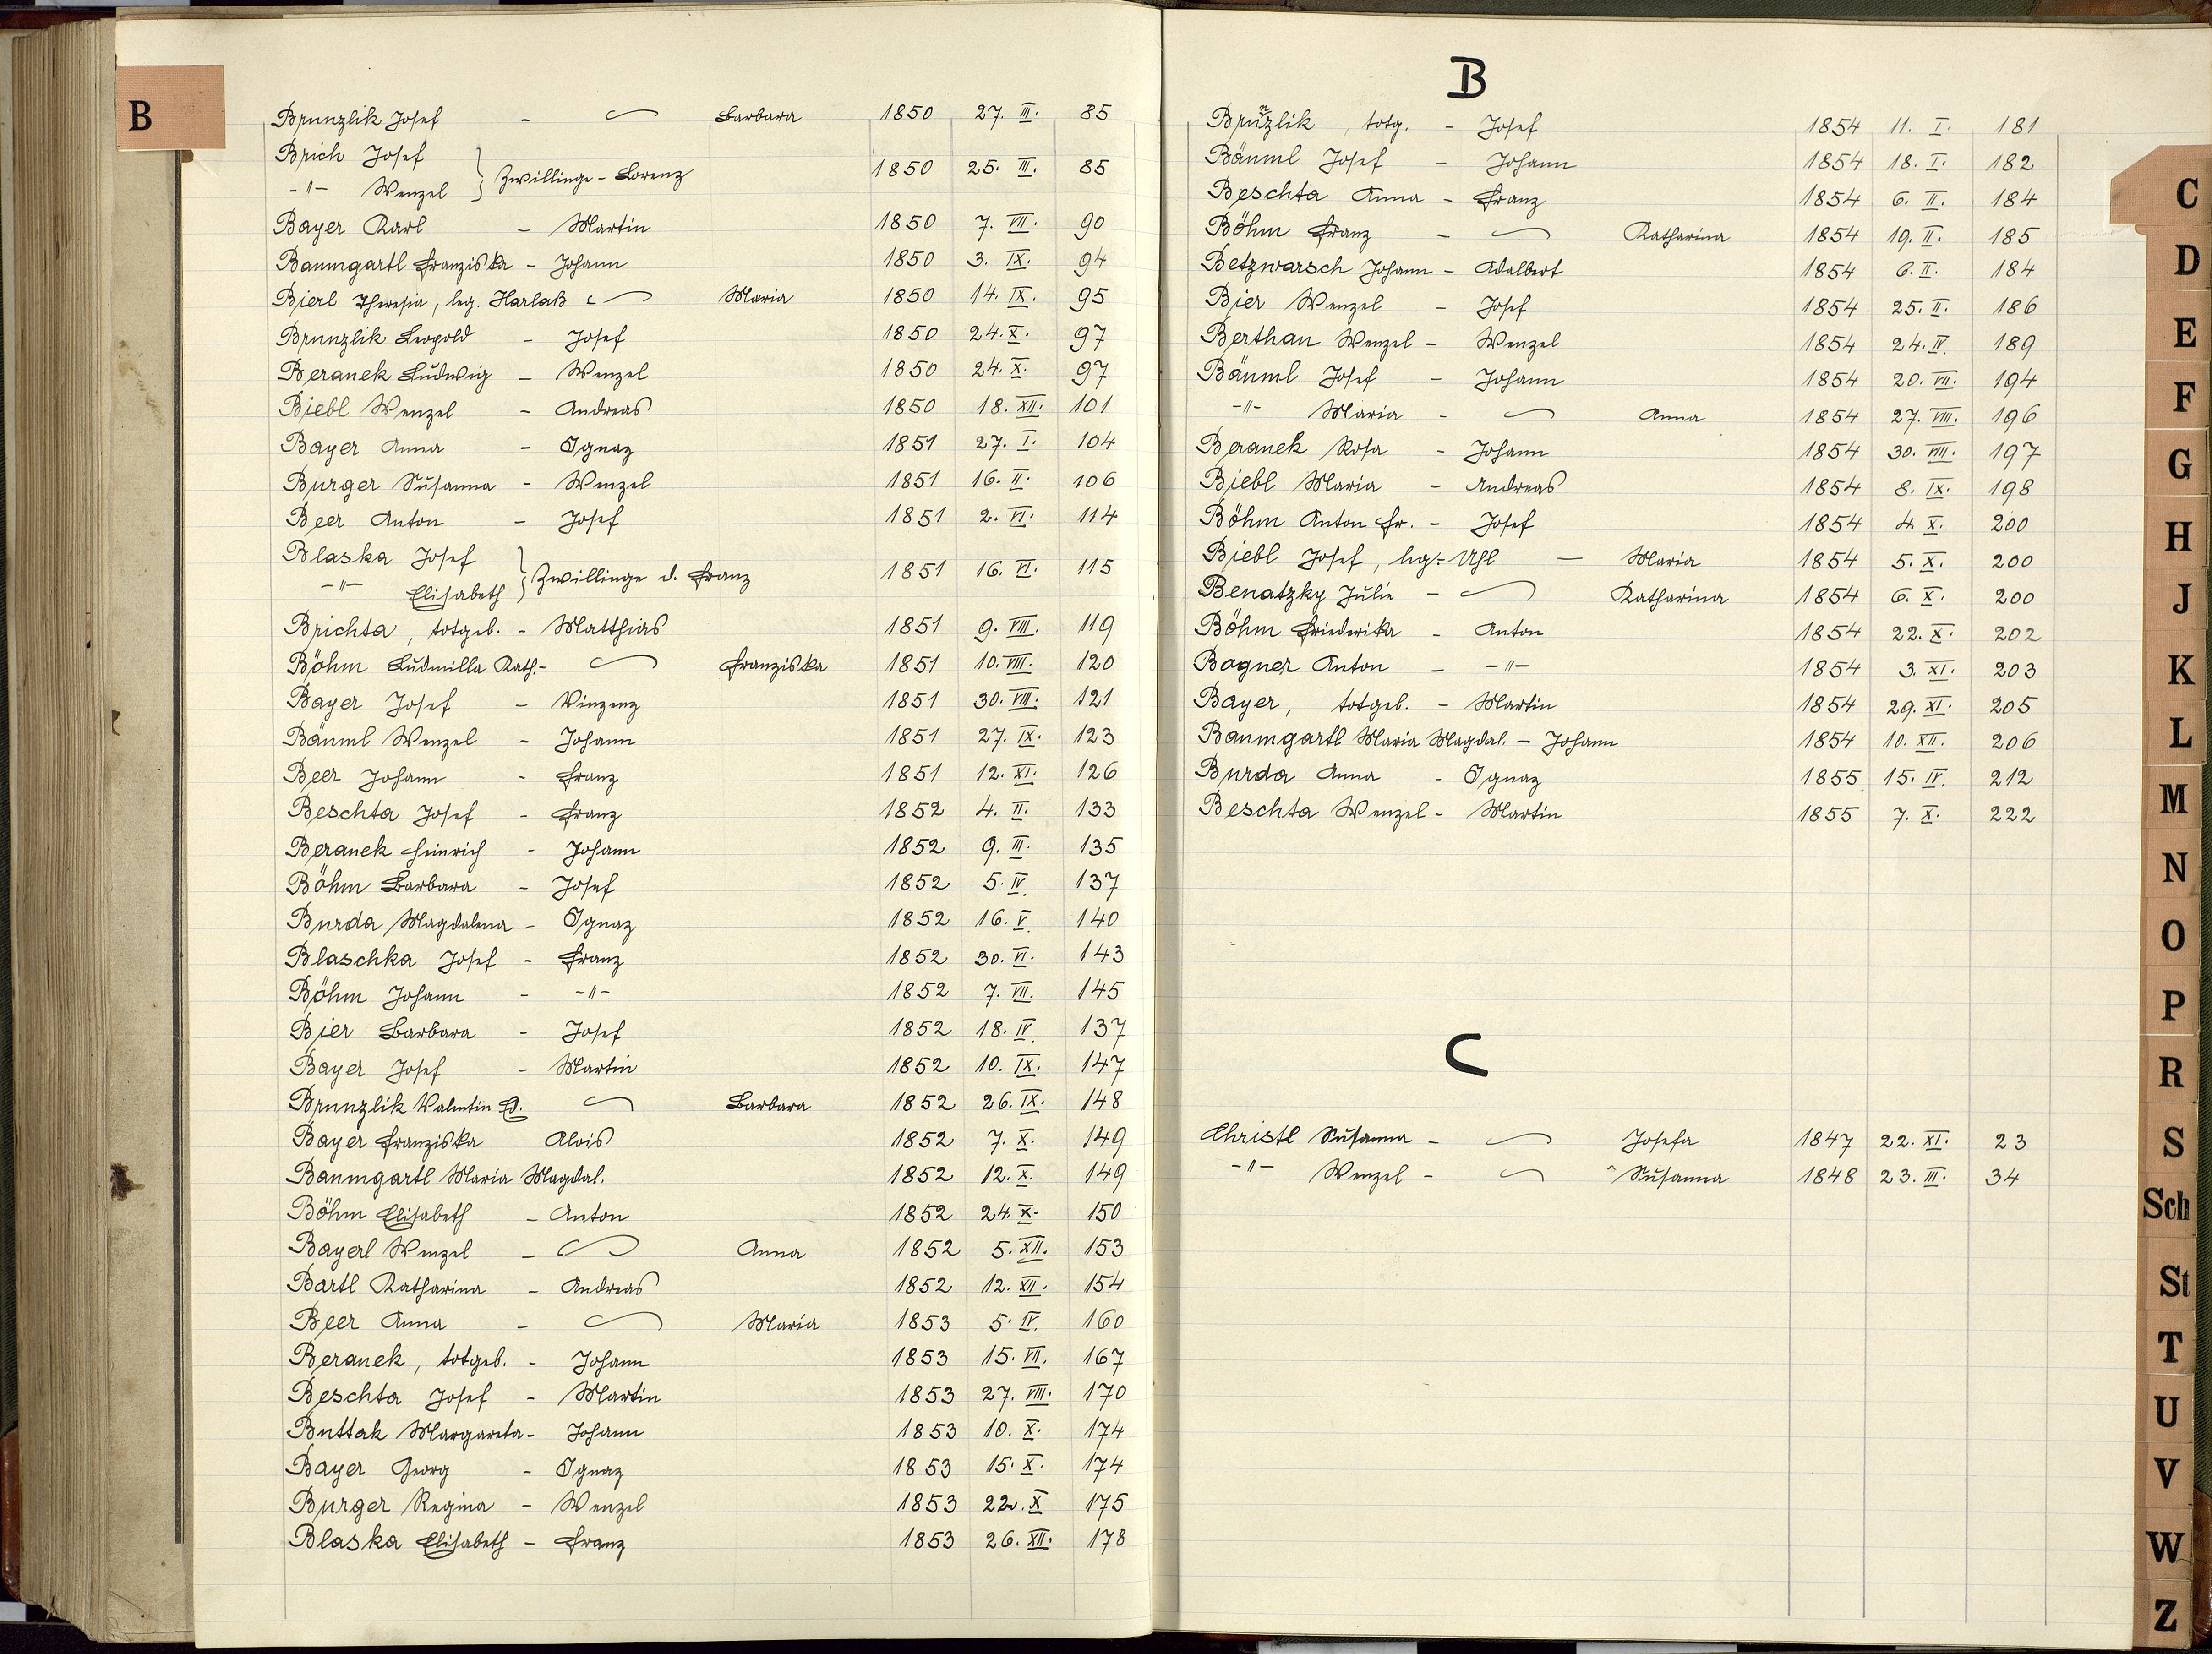 B
Brunzlik Josef - ~ Barbara 1850 27. III. 85
Brich Josef
-"- Wenzel } Zwillinge - Lorenz 1850 25. III. 85
Bayer Karl - Martin 1850 7. VII. 90
Baumgartl Franziska - Johann 1850 3. IX. 94
Bierl Theresia, leg. Harlaß ~ Maria 1850 14. IX. 95
Brunzlik Leopold - Josef 1850 24. X. 97
Beranek Ludwig - Wenzel 1850 24. X. 97
Biebl Wenzel - Andreas 1850 18. XII. 101
Bayer Anna - Ignaz 1851 27. I. 104
Burger Susanna - Wenzel 1851 16. II. 106
Beer Anton - Josef 1851 2. VI. 114
Blaska Josef
-"- Elisabeth } Zwillinge d. Franz 1851 16. VI. 115
Brichta, totgeb. - Matthias 1851 9. VIII. 119
Böhm Ludmilla Kath. - ~ Franziska 1851 10. VIII. 120
Bayer Josef - Vinzenz 1851 30. VIII. 121
Bäuml Wenzel - Johann 1851 27. IX. 123
Beer Johann - Franz 1851 12. XI. 126
Beschta Josef - Franz 1852 4. II. 133
Beranek Heinrich - Johann 1852 9. III. 135
Böhm Barbara - Josef 1852 5. IV. 137
Burda Magdalena - Ignaz 1852 16. V. 140
Blaschka Josef - Franz 1852 30. VI. 143
Böhm Johann - -"- 1852 7. VII. 145
Bier Barbara - Josef 1852 18. IV. 137
Bayer Josef - Martin 1852 10. IX. 147
Brunzlik Valentin Ed. ~ Barbara 1852 26. IX. 148
Bayer Franziska Alois 1852 7. X. 149
Baumgartl Maria Magdal. 1852 12. X. 149
Böhm Elisabeth - Anton 1852 24. X. 150
Bayerl Wenzel - ~ Anna 1852 5. XII. 153
Bartl Katharina - Andreas 1852 12. XII. 154
Beer Anna - ~ Maria 1853 5. IV. 160
Beranek, totgeb. - Johann 1853 15. VII. 167
Beschta Josef - Martin 1853 27. VIII. 170
Buttak Margareta - Johann 1853 10. X. 174
Bayer Georg - Ignaz 1853 15. X. 174
Burger Regina - Wenzel 1853 22. X 175
Blaska Elisabeth - Franz 1853 26. XII. 178
B
Brunzlik, totg. - Josef 1854 11. I. 181
Bäuml Josef - Johann 1854 18. I. 182
Beschta Anna - Franz 1854 6. II. 184
Böhm Franz - ~ Katharina 1854 19. II. 185
Betzwarsch Johann - Adalbert 1854 6. II. 184
Bier Wenzel - Josef 1854 25. II. 186
Berthan Wenzel - Wenzel 1854 24. IV. 189
Bäuml Josef - Johann 1854 20. VII. 194
-"- Maria - ~ Anna 1854 27. VIII. 196
Beranek Rosa - Johann 1854 30. VIII. 197
Biebl Maria - Andreas 1854 8. IX. 198
Böhm Anton Fr. - Josef 1854 4. X. 200
Biebl Josef, leg. Uhl - Maria 1854 5. X. 200
Benatzky Julie - ~ Katharina 1854 6. X. 200
Böhm Friederika - Anton 1854 22. X. 202
Bogner Anton - -"- 1854 3. XI. 203
Bayer, totgeb. - Martin 1854 29. XI. 205
Baumgartl Maria Magdal. - Johann 1854 10. XII. 206
Burda Anna - Ignaz 1855 15. IV. 212
Beschta Wenzel - Martin 1855 7. X. 222
C
Christl Susanna - ~ Josefa 1847 22. XI. 23
-"- Wenzel - ~ Susanna 1848 23. III. 34
C
D
E
F
G
H
J
K
L
M
N
O
P
R
S
Sch
St
T
U
V
W
Z